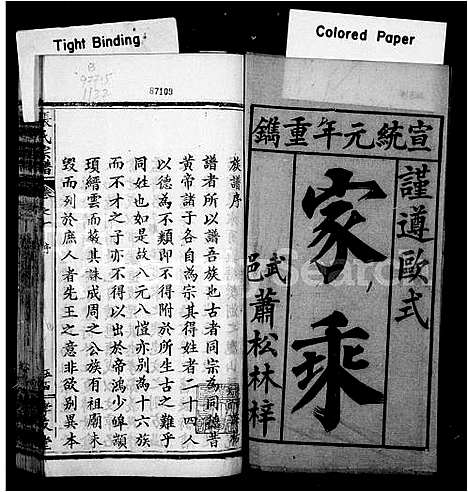 Tight Binding
Colored Paper
B
97715
1132
87109
宣統元年重鐫
謹遵歐式
家乘
武邑蕭松林梓
族譜序
譜者所以譜吾族也古者同宗為同德昔
黃帝諸子各自為宗其得姓者二十四人
以德為不類即不得附於所生古之難乎
同姓也如是故八元八愷亦別為十六族
而不才之子亦不得以出於帝鴻少皡顓
頊縉雲而蔽其誅成周之公族有祖廟未
毀而列於庶人者先王之意非欲別異本
氏宗譜
序